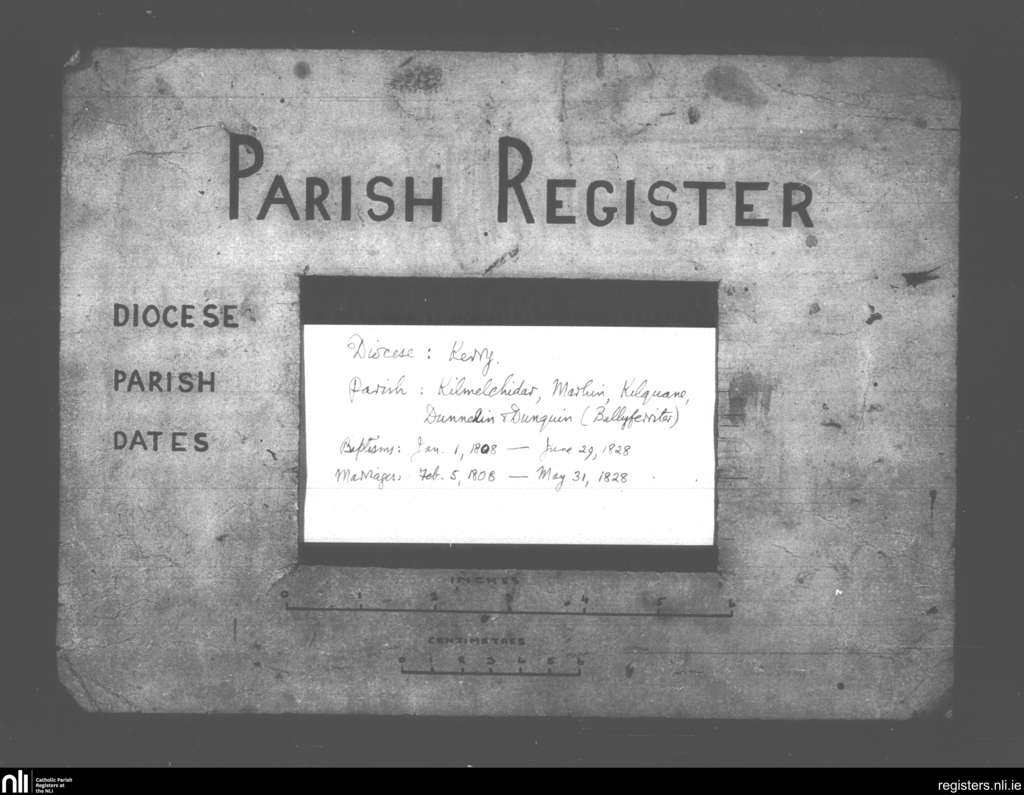 PARISH REGISTER
DIOCESE
PARISH
DATES
Diocese : Kerry.
Parish : Kilmelchidar, Marhin, Kilquane,
Dunnelin & Dunquin (Ballyferriter)
Baptisms: Jan. 1, 1808 — June 29, 1828
Marriages: Feb. 5, 1808 — May 31, 1828
INCHES
0 1 2 3 4 5 6
CENTIMETRES
0 1 2 3 4 5 6
nli
Catholic Parish
Registers at
the NLI
registers.nli.ie